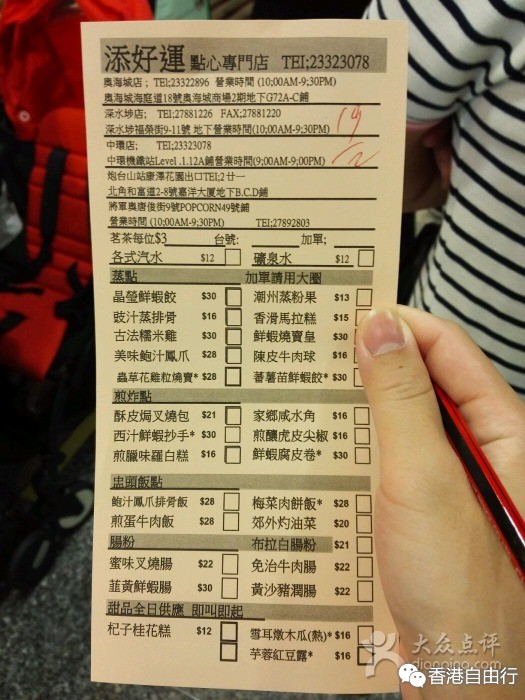 添好運 點心專門店 TEl;23323078
奧海城店; TEl;23322896 營業時間 (10;00AM-9;30PM)
奧海城海庭道18號奧海城商場2期地下G72A-C鋪
深水埗店; TEl;27881226 FAX;27881220
深水埗福榮街9-11號 地下營業時間(10;00AM-9;30PM)
中環店; TEl;23323078
中環機鐵站Level .1.12A鋪營業時間(9;00AM-9;00PM)
炮台山站康澤花園出口TEl;2廿一
北角和富道2-8號嘉洋大廈地下B.C.D鋪
將軍奧唐俊街9號POPCORN49號鋪
營業時間 (10;00AM-9;30PM) TEl;27892803
19
/2
茗茶每位$3 台號: 加單;
各式汽水 $12 礦泉水 $12
蒸點 加單請用大圈
晶瑩鮮蝦餃 $30 潮州蒸粉果 $13
豉汁蒸排骨 $16 香滑馬拉糕 $15
古法糯米雞 $30 鮮蝦燒賣皇 $30
美味鮑汁鳳爪 $28 陳皮牛肉球 $16
蟲草花雞粒燒賣* $28 蕃薯苗鮮蝦餃* $30
煎炸點
酥皮焗叉燒包 $21 家鄉咸水角 $16
西汁鮮蝦抄手* $30 煎釀虎皮尖椒 $16
煎臘味羅白糕 $16 鮮蝦腐皮卷* $30
盅頭飯點
鮑汁鳳爪排骨飯 $28 梅菜肉餅飯* $28
煎蛋牛肉飯 $28 郊外灼油菜 $20
腸粉 布拉白腸粉 $21
蜜味叉燒腸 $22 免治牛肉腸 $22
韮黃鮮蝦腸 $30 黃沙豬潤腸 $22
甜品全日供應 即叫即起
杞子桂花糕 $12 雪耳燉木瓜(熱)* $16
芋蓉紅豆露* $16
大众点评
dianping.com
香港自由行